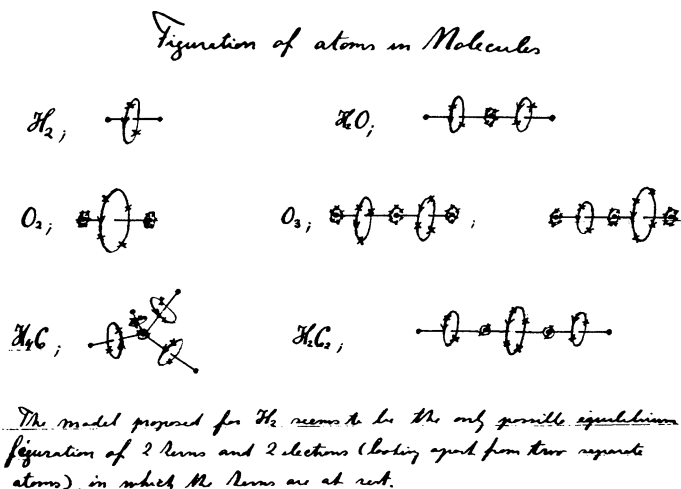 Figuration of atoms in Molecules
H2; H2O;
O2; O3; ;
H4C; H2C2;
The model proposed for H2 seems to be the only possible equilibrium
figuration of 2 kerns and 2 electrons (looking apart from two separate
atoms) in which the kerns are at rest.